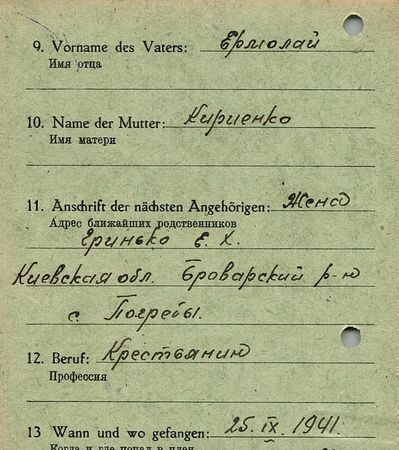 9. Vorname des Vaters: Ермолай
Имя отца
10. Name der Mutter: Кириенко
Имя матери
11. Anschrift der nächsten Angehörigen: Жена
Адрес ближайших родственников
Еринько Е. Х.
Киевская обл. Броварский р-н
с Погребы.
12. Beruf: Крестьянин
Профессия
13 Wann und wo gefangen: 25. IX. 1941.
Когда и где попал в плен